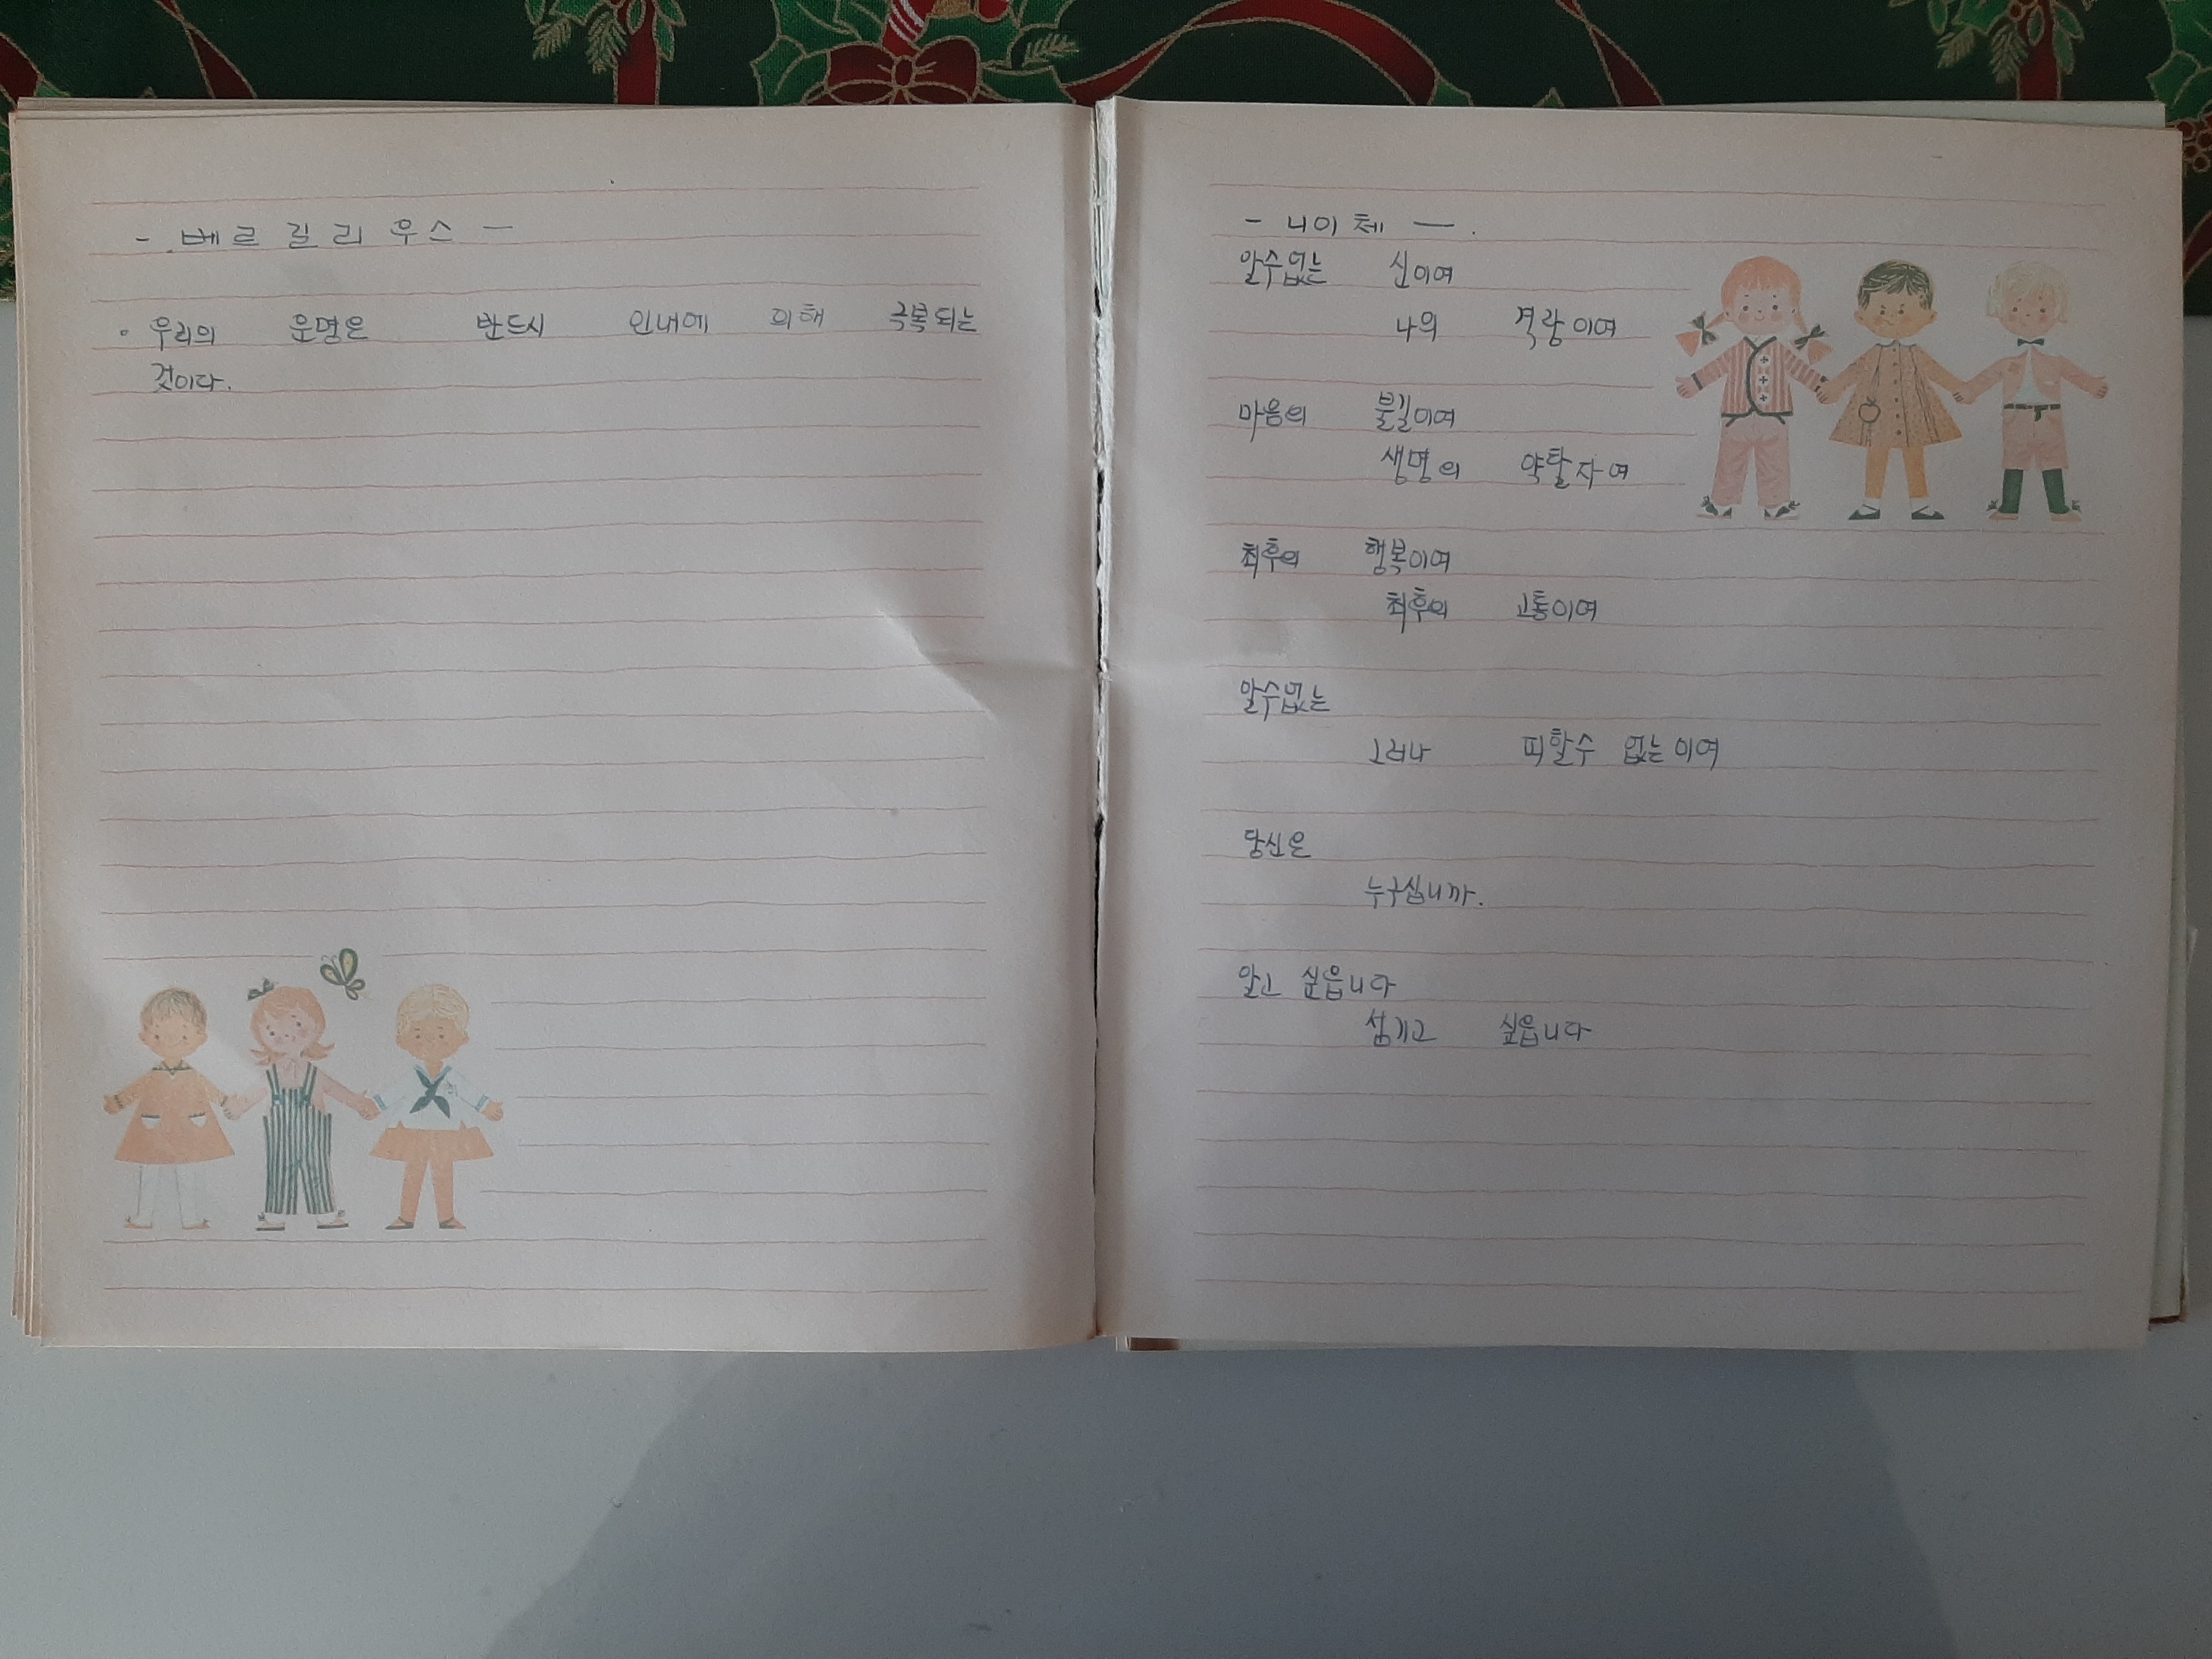 - 베르길리우스 -
• 우리의 운명은 반드시 인내에 의해 극복되는
것이다.
- 니이체 - .
알수없는 신이여
나의 격랑이여
마음의 불길이여
생명의 약탈자여
최후의 행복이여
최후의 고통이여
알수없는
그러나 피할수 없는이여
당신은
누구십니까.
알고 싶읍니다
섬기고 싶읍니다